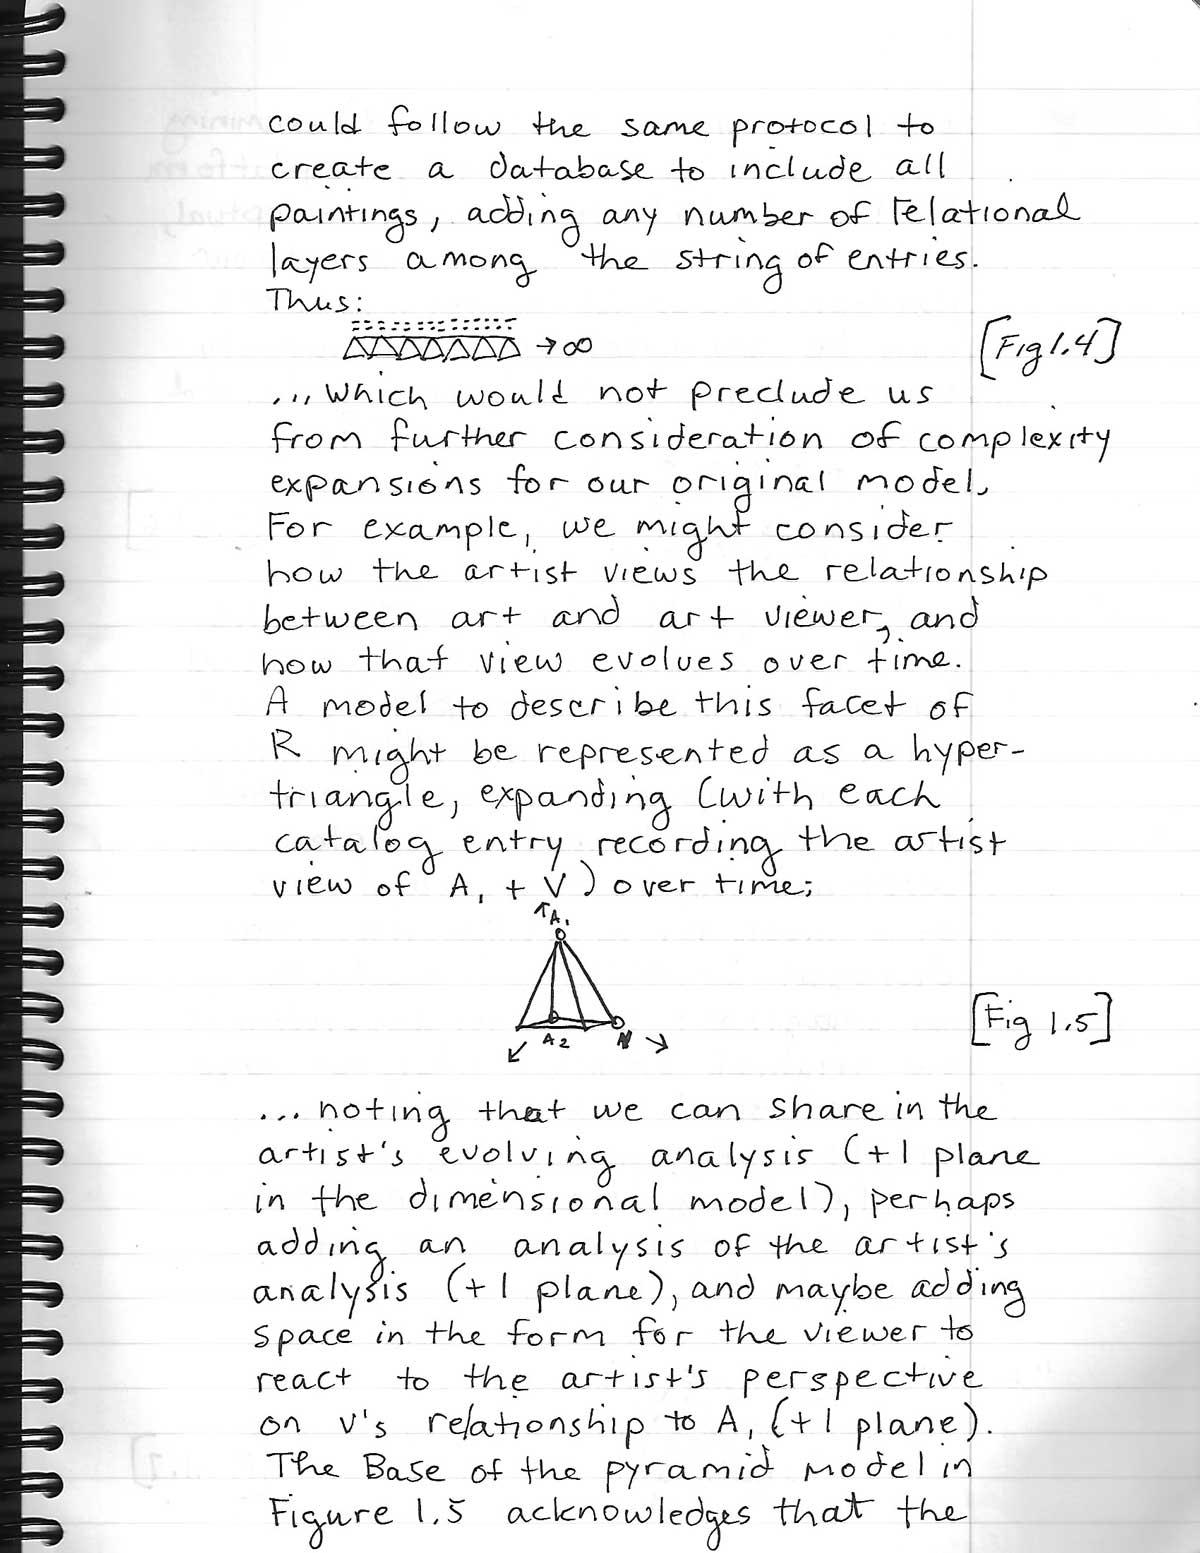 could follow the same protocol to
create a database to include all
paintings, adding any number of relational
layers among the string of entries.
Thus:
→∞ [Fig 1.4]
... which would not preclude us
from further consideration of complexity
expansions for our original model.
For example, we might consider
how the artist views the relationship
between art and art viewer, and
how that view evolves over time.
A model to describe this facet of
R might be represented as a hyper-
triangle, expanding (with each
catalog entry recording the artist
view of A, + V) over time;
A1
[Fig 1.5]
A2
... noting that we can share in the
artist's evolving analysis (+1 plane
in the dimensional model), perhaps
adding an analysis of the artist's
analysis (+1 plane), and maybe adding
space in the form for the viewer to
react to the artist's perspective
on V's relationship to A, (+1 plane).
The Base of the pyramid model in
Figure 1.5 acknowledges that the